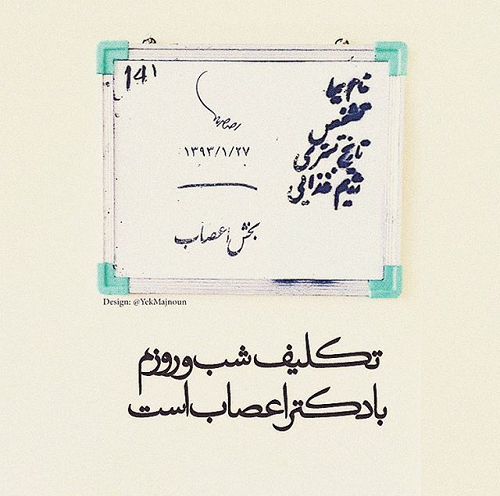 14۱
نام بیمار
متخصص
تاریخ بستری
رژیم غذایی
۱۳۹۳/۱/۲۷
بخش اعصاب
Design: @YekMajnoun
تکلیف شب و روزم
با دکتر اعصاب است